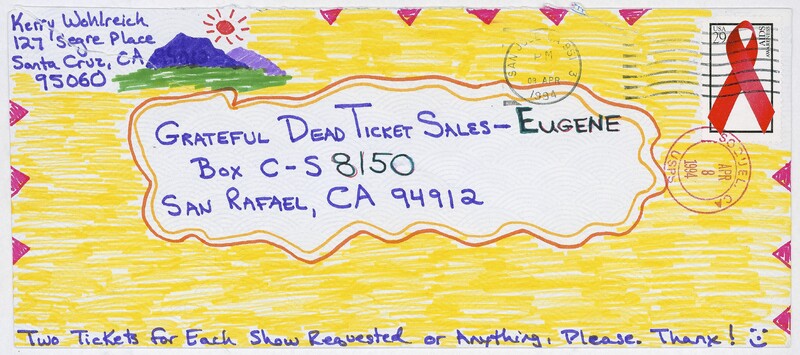 Kerry Wohlreich
127 Segre Place
Santa Cruz, CA
95060
SAN JOSE, CA 951 3
PM
09 APR
1994
USA
29
AIDS
AWARENESS
GRATEFUL DEAD TICKET SALES – EUGENE
BOX C-S 8150
SAN RAFAEL, CA 94912
SOQUEL, CA
APR
8
1994
USPS
Two Tickets for Each Show Requested or Anything, Please. Thanx!